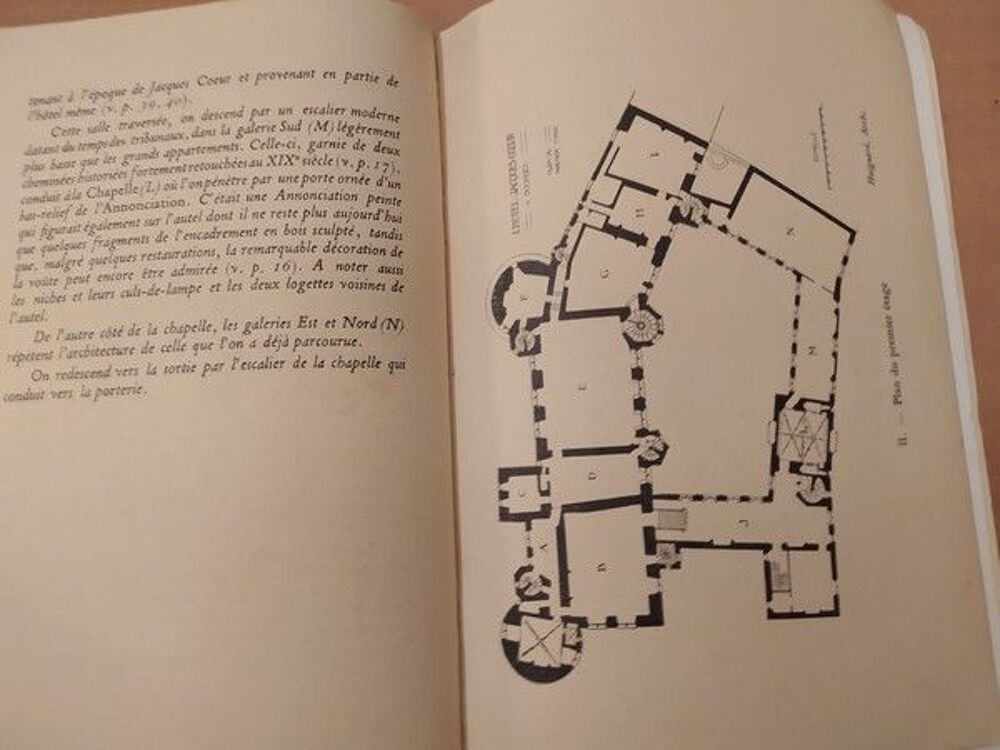 tenant à l'époque de Jacques Coeur et provenant en partie de
l'hôtel même (v. p. 39, 40).
Cette salle traversée, on descend par un escalier moderne
datant du temps des tribunaux, dans la galerie Sud (M) légèrement
plus basse que les grands appartements. Celle-ci, garnie de deux
cheminées historiées fortement retouchées au XIXe siècle (v. p. 17),
conduit à la Chapelle (L) où l'on pénètre par une porte ornée d'un
bas-relief de l'Annonciation. C'était une Annonciation peinte
qui figurait également sur l'autel dont il ne reste plus aujourd'hui
que quelques fragments de l'encadrement en bois sculpté, tandis
que, malgré quelques restaurations, la remarquable décoration de
la voûte peut encore être admirée (v. p. 16). A noter aussi
les niches et leurs culs-de-lampe et les deux logettes voisines de
l'autel.
De l'autre côté de la chapelle, les galeries Est et Nord (N)
répètent l'architecture de celle que l'on a déjà parcourue.
On redescend vers la sortie par l'escalier de la chapelle qui
conduit vers la porterie.
L'HOTEL JACQUES-CŒUR
A BOURGES
I
H
G
F
E
D
C
A
B
J
L
N
N
II. — Plan du premier étage